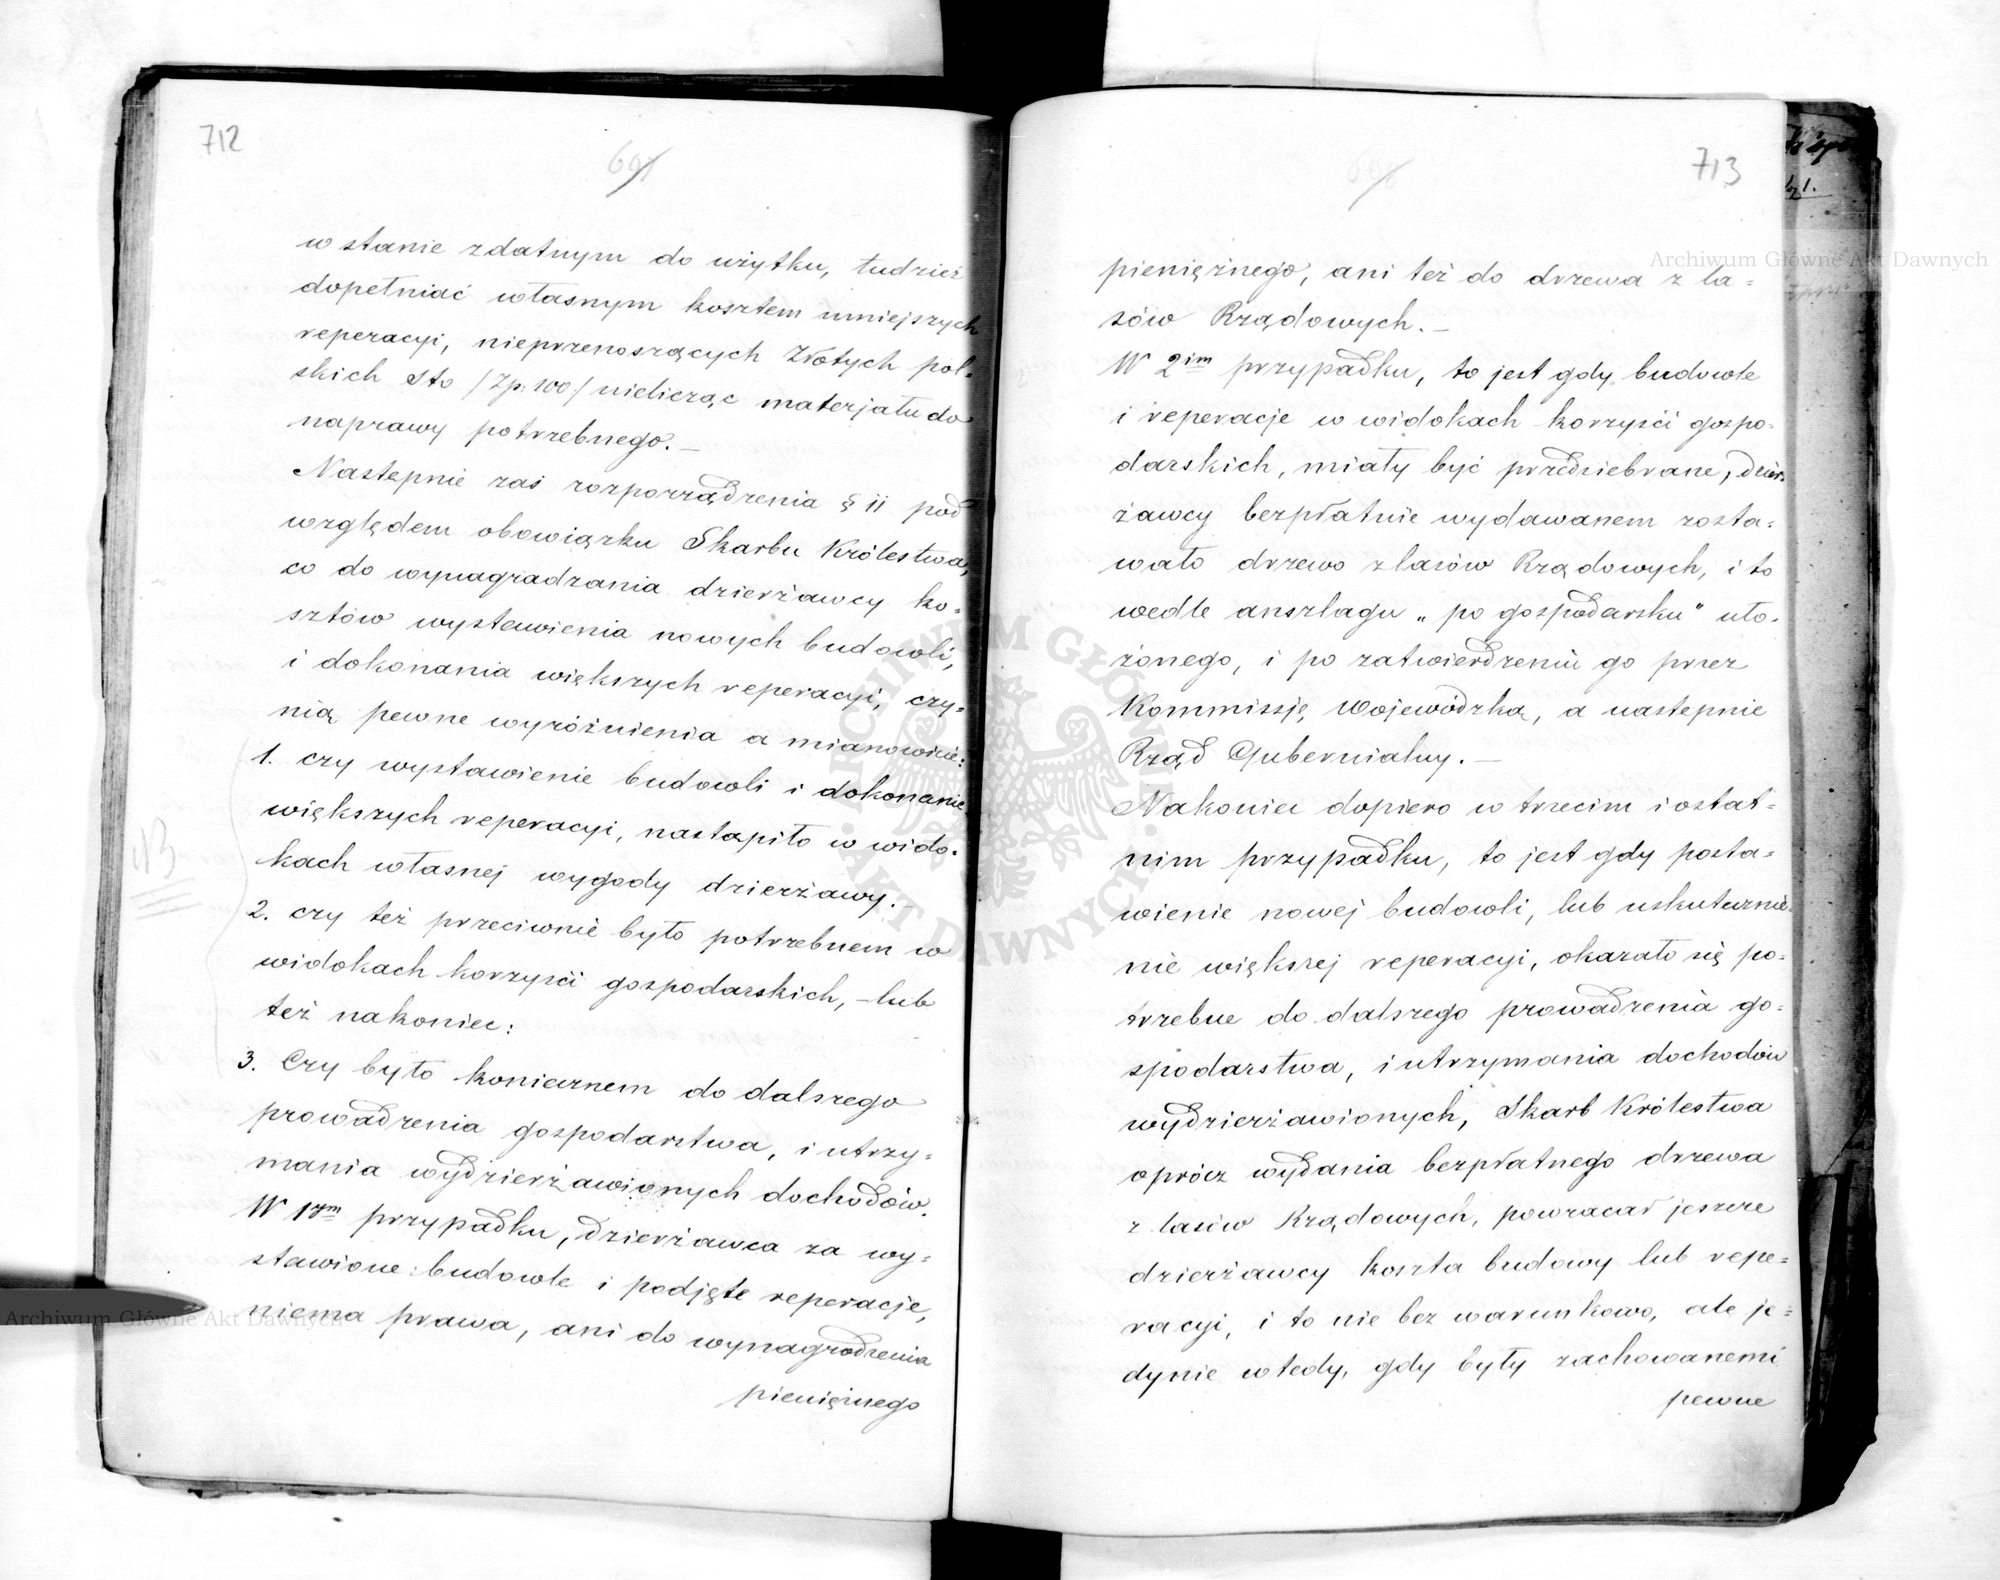 712
691
w stanie zdatnym do użytku, tudzież
dopełniać własnym kosztem mniejszych
reperacyi, nieprzenoszących Złotych pol-
skich Sto /Zp. 100/ nielicząc materjału do
naprawy potrzebnego. —
Nastepnie zaś rozporządzenia § 11 pod
względem obowiązku Skarbu Królestwa,
co do wynagradzania dzierżawcy ko-
sztów wystawienia nowych budowli,
i dokonania większych reperacyi, czy-
nią pewne wyróżnienia a mianowicie:
1. czy wystawienie budowli i dokonanie
większych reperacyi, nastąpiło w wido-
kach własnej wygody dzierżawy. —
2. czy też przeciwnie było potrzebnem w
widokach korzyści gospodarskich, — lub
też nakoniec:
3. Czy było koniecznem do dalszego
prowadzenia gospodarstwa, i utrzy-
mania wydzierżawionych dochodów.
W 1ym przypadku, dzierżawca za wy-
stawione budowle i podjęte reperacje,
niema prawa, ani do wynagrodzenia
pieniężnego
713
pieniężnego, ani też do drzewa z la-
sów Rządowych. —
W 2im przypadku, to jest gdy budowle
i reperacje w widokach korzyści gospo-
darskich, miały być przedsiebrane, dzier-
żawcy bezpłatnie wydawanem zosta-
wało drzewo z lasów Rządowych, i to
wedle anszlagu „po gospodarsku" uło-
żonego, i po zatwierdzeniu go przez
Kommissję Wojewódzką, a nastepnie
Rząd Gubernialny. —
Nakoniec dopiero w trzecim i ostat-
nim przypadku, to jest gdy posta-
wienie nowej budowli, lub uskutecznie-
nie większej reperacyi, okazało się po-
trzebne do dalszego prowadzenia go-
spodarstwa, i utrzymania dochodów
wydzierżawionych, Skarb Królestwa
oprócz wydania bezpłatnego drzewa
z lasów Rządowych, powracał jeszcze
dzierżawcy koszta budowy lub repe-
racyi, i to nie bez warunkowo, ale je-
dynie wtedy, gdy były zachowanemi
pewne
Archiwum Główne Akt Dawnych
Archiwum Główne Akt Dawnych
ARCHIWUM GŁÓWNE AKT DAWNYCH